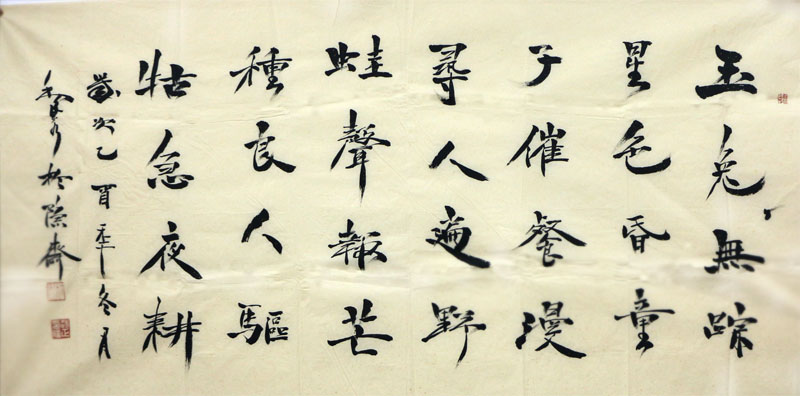 玉兔無踪
星色昏童
子催餐漫
尋人遍野
蛙聲報芒
種良人驅
牯急夜耕
歲次乙酉年冬月
於隱齋